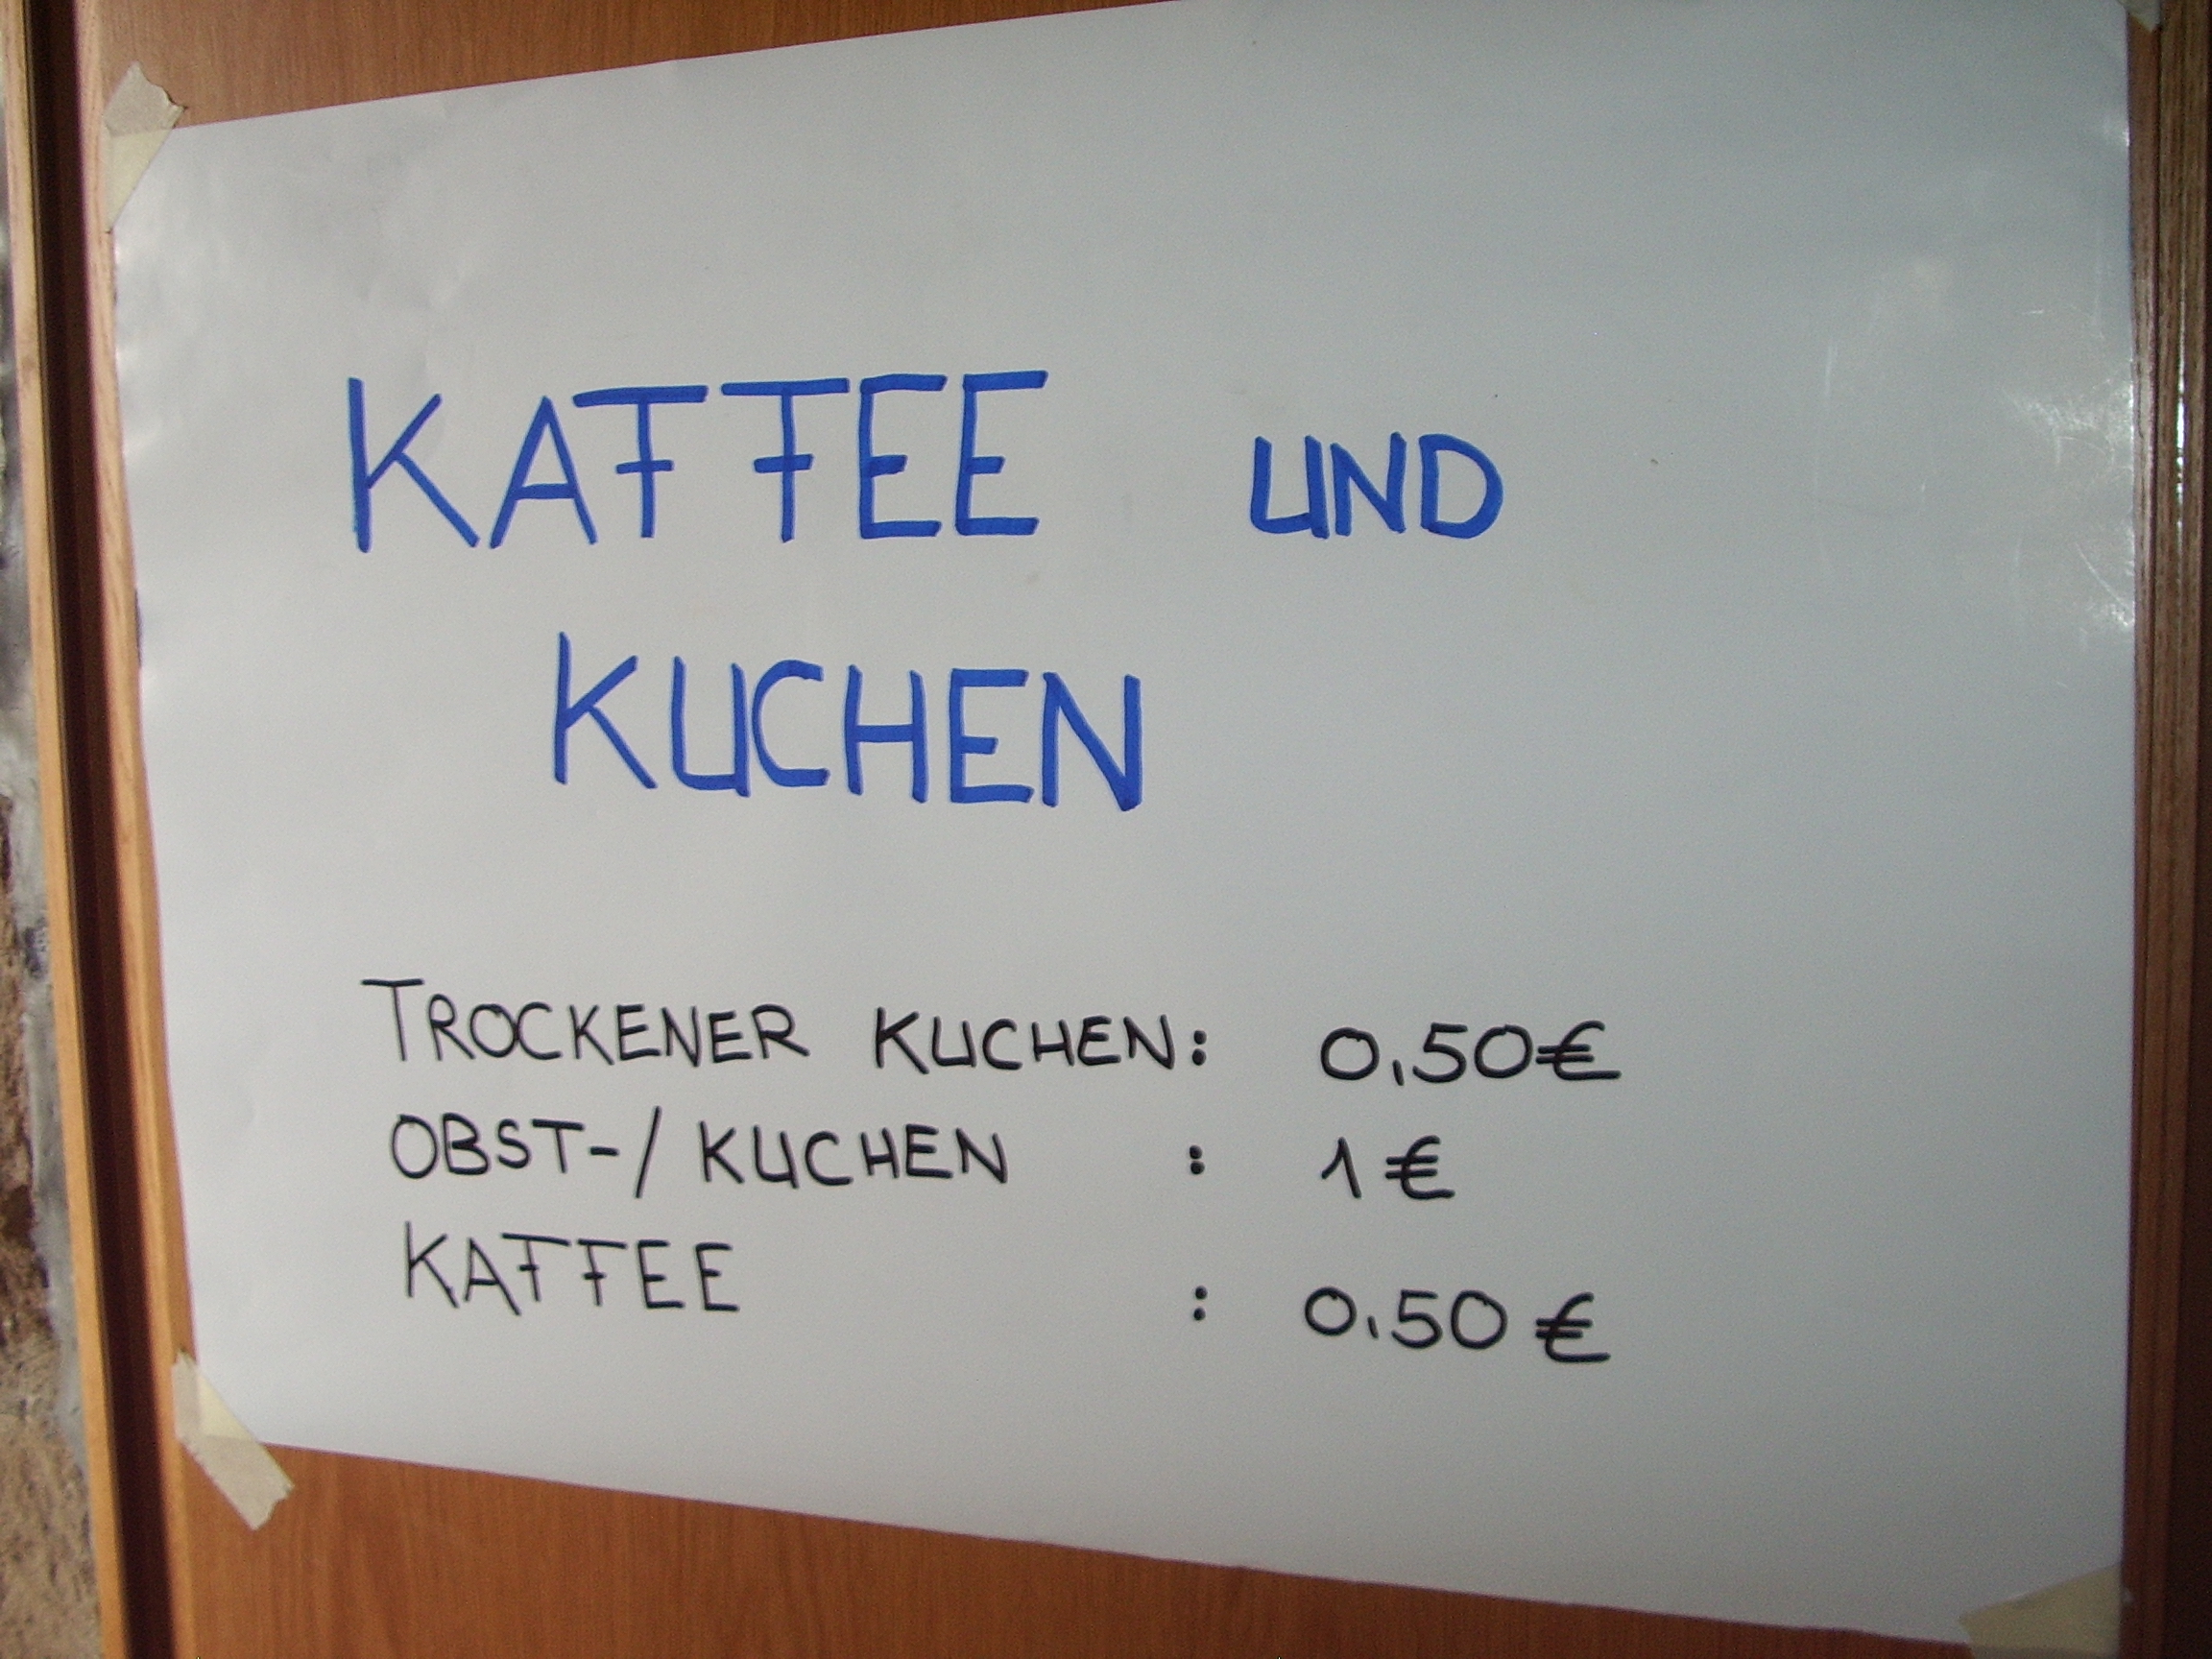 KAFFEE UND
KUCHEN
TROCKENER KUCHEN: 0,50€
OBST-/KUCHEN : 1€
KAFFEE : 0,50€